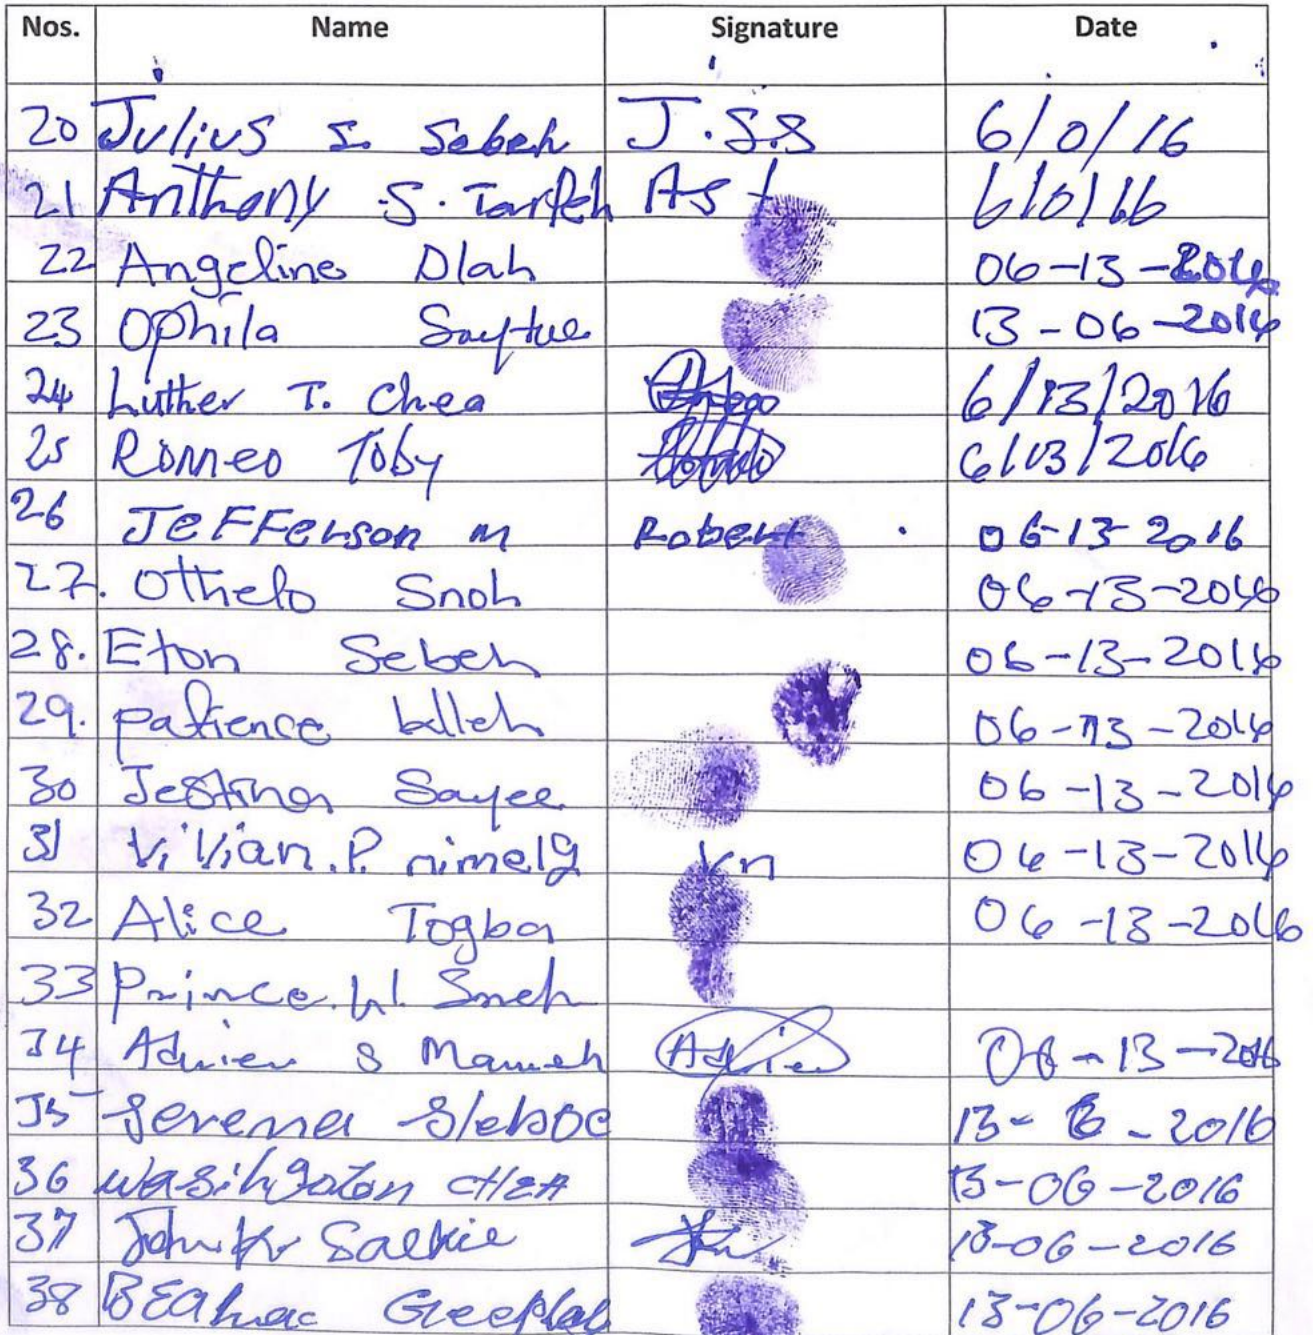 Nos. Name Signature Date
20 Julius S. Sebeh J.S.S 6/0/16
21 Anthony S. Tarpeh AST 6/0/16
22 Angeline Dlah 06-13-2016
23 Ophila Saytue 13-06-2016
24 Luther T. Chea 6/13/2016
25 Romeo Toby 6/13/2016
26 JeFFerson M Robert 06-13-2016
27. Othelo Snoh 06-13-2016
28. Eton Sebeh 06-13-2016
29. patience 06-13-2016
30 Jestina Sayee 06-13-2016
31 Vivian.P. nimely Vn 06-13-2016
32 Alice Togba 06-13-2016
33 Prince.W. Sneh
34 Adrien S 06-13-2016
35 Serena Sleboe 13-6-2016
36 wasihgoton CHEA 13-06-2016
37 John K. 13-06-2016
38 13-06-2016